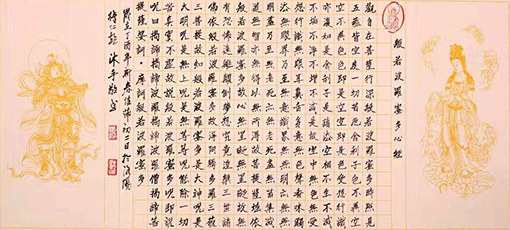 般若波羅蜜多心經
觀自在菩薩行深般若波羅蜜多時照見
五蘊皆空度一切苦厄舍利子色不異空
空不異色色即是空空即是色受想行識
亦復如是舍利子是諸法空相不生不滅
不垢不淨不增不減是故空中無色無受
想行識無眼耳鼻舌身意無色聲香味觸
法無眼界乃至無意識界無無明亦無無
明盡乃至無老死亦無老死盡無苦集滅
道無智亦無得以無所得故菩提薩埵依
般若波羅蜜多故心無罣礙無罣礙故無
有恐怖遠離顛倒夢想究竟涅槃三世諸
佛依般若波羅蜜多故得阿耨多羅三藐
三菩提故知般若波羅蜜多是大神咒是
大明咒是無上咒是無等等咒能除一切
苦真實不虛故說般若波羅蜜多咒即說
咒曰揭諦揭諦波羅揭諦波羅僧揭諦菩
提薩婆訶 摩訶般若波羅蜜多
歲在丁酉年新春佳節初二日於
沐手敬書